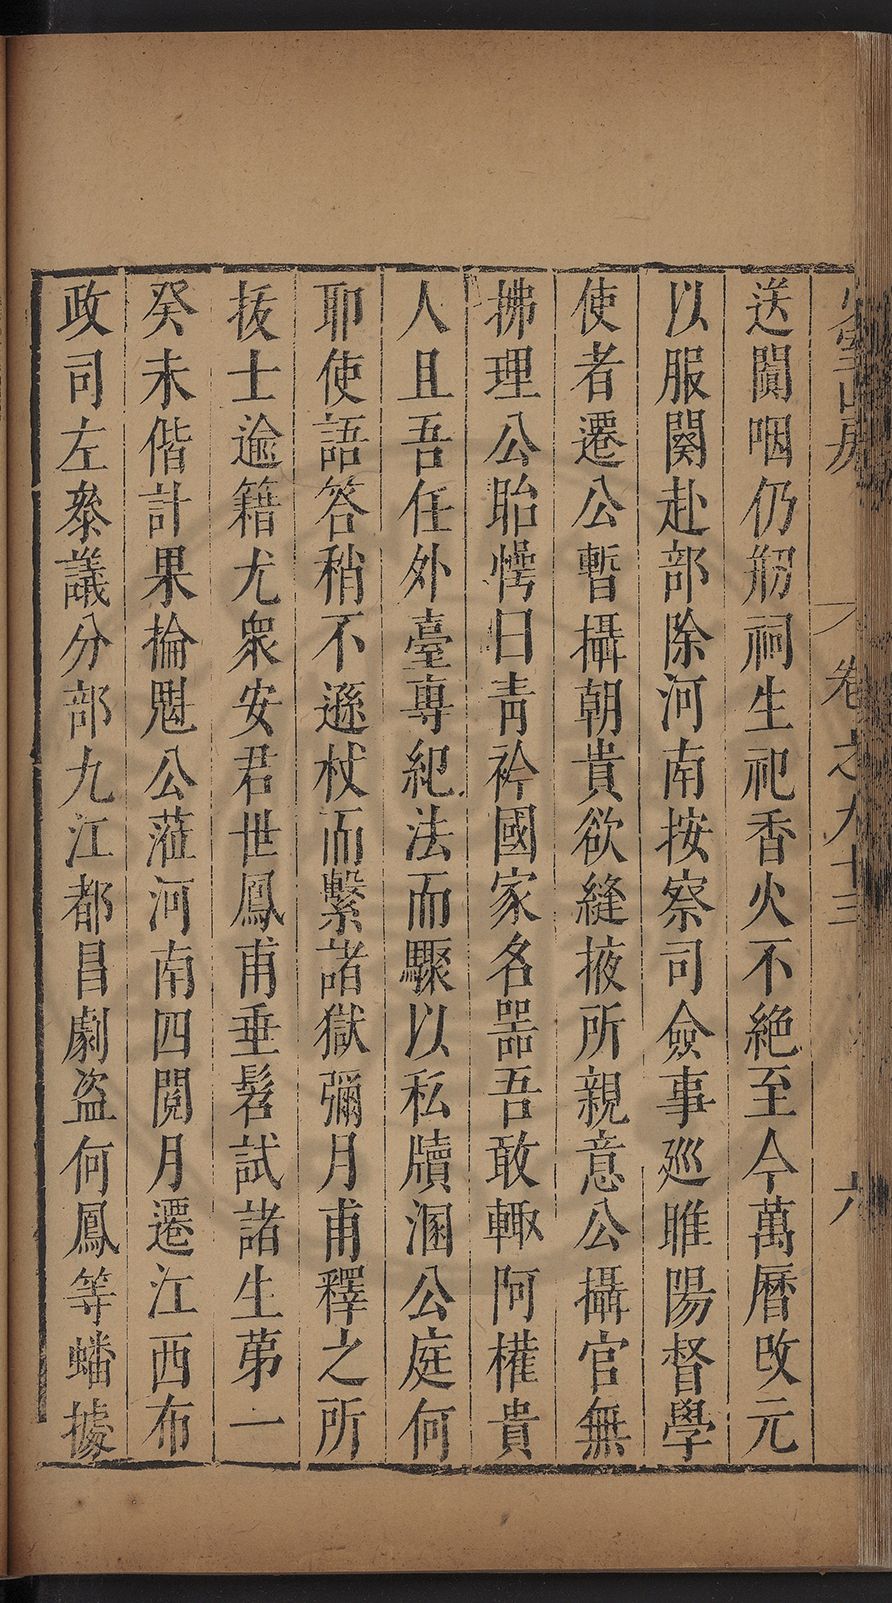 少室山房
卷之九十三
六
送闐咽仍剏祠生祀香火不絶至今萬曆改元
以服闋赴部除河南按察司僉事巡睢陽督學
使者遷公暫攝朝貴欲縫掖所親意公攝官無
拂理公眙愕曰青衿國家名器吾敢輙阿權貴
人且吾任外臺專紀法而驟以私牘溷公庭何
耶使語答稍不遜杖而繫諸獄彌月甫釋之所
拔士逾籍尤衆安君世鳳甫垂髫試諸生苐一
癸未偕計果掄魁公蒞河南四閲月遷江西布
政司左叅議分部九江都昌劇盗何鳳等蟠據